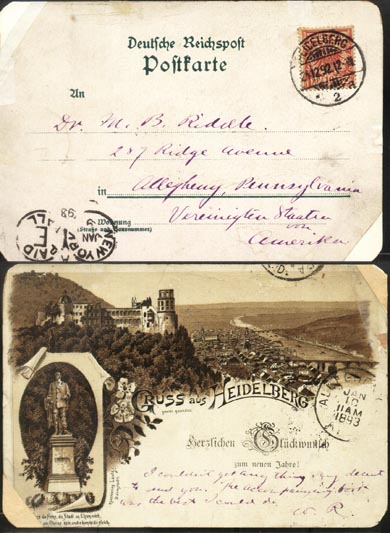 Deutsche Reichspost
Postkarte
HEIDELBERG
12.92.12
2
An
Dr. M. B. Riddle.
287 Ridge Avenue
in Allegheny, Pennsylvania
Wohnung
(Straße und Hausnummer)
Vereinigten Staaten
von
Amerika
NEW YORK
JAN
93
PAID
ALL
GRUSS aus HEIDELBERG
JAN
10
11AM
1893
Herzlichen Glückwunsch
zum neuen Jahre!
I couldn't get anything very decent
to send you. The accompanying
was the best I could do.
R.